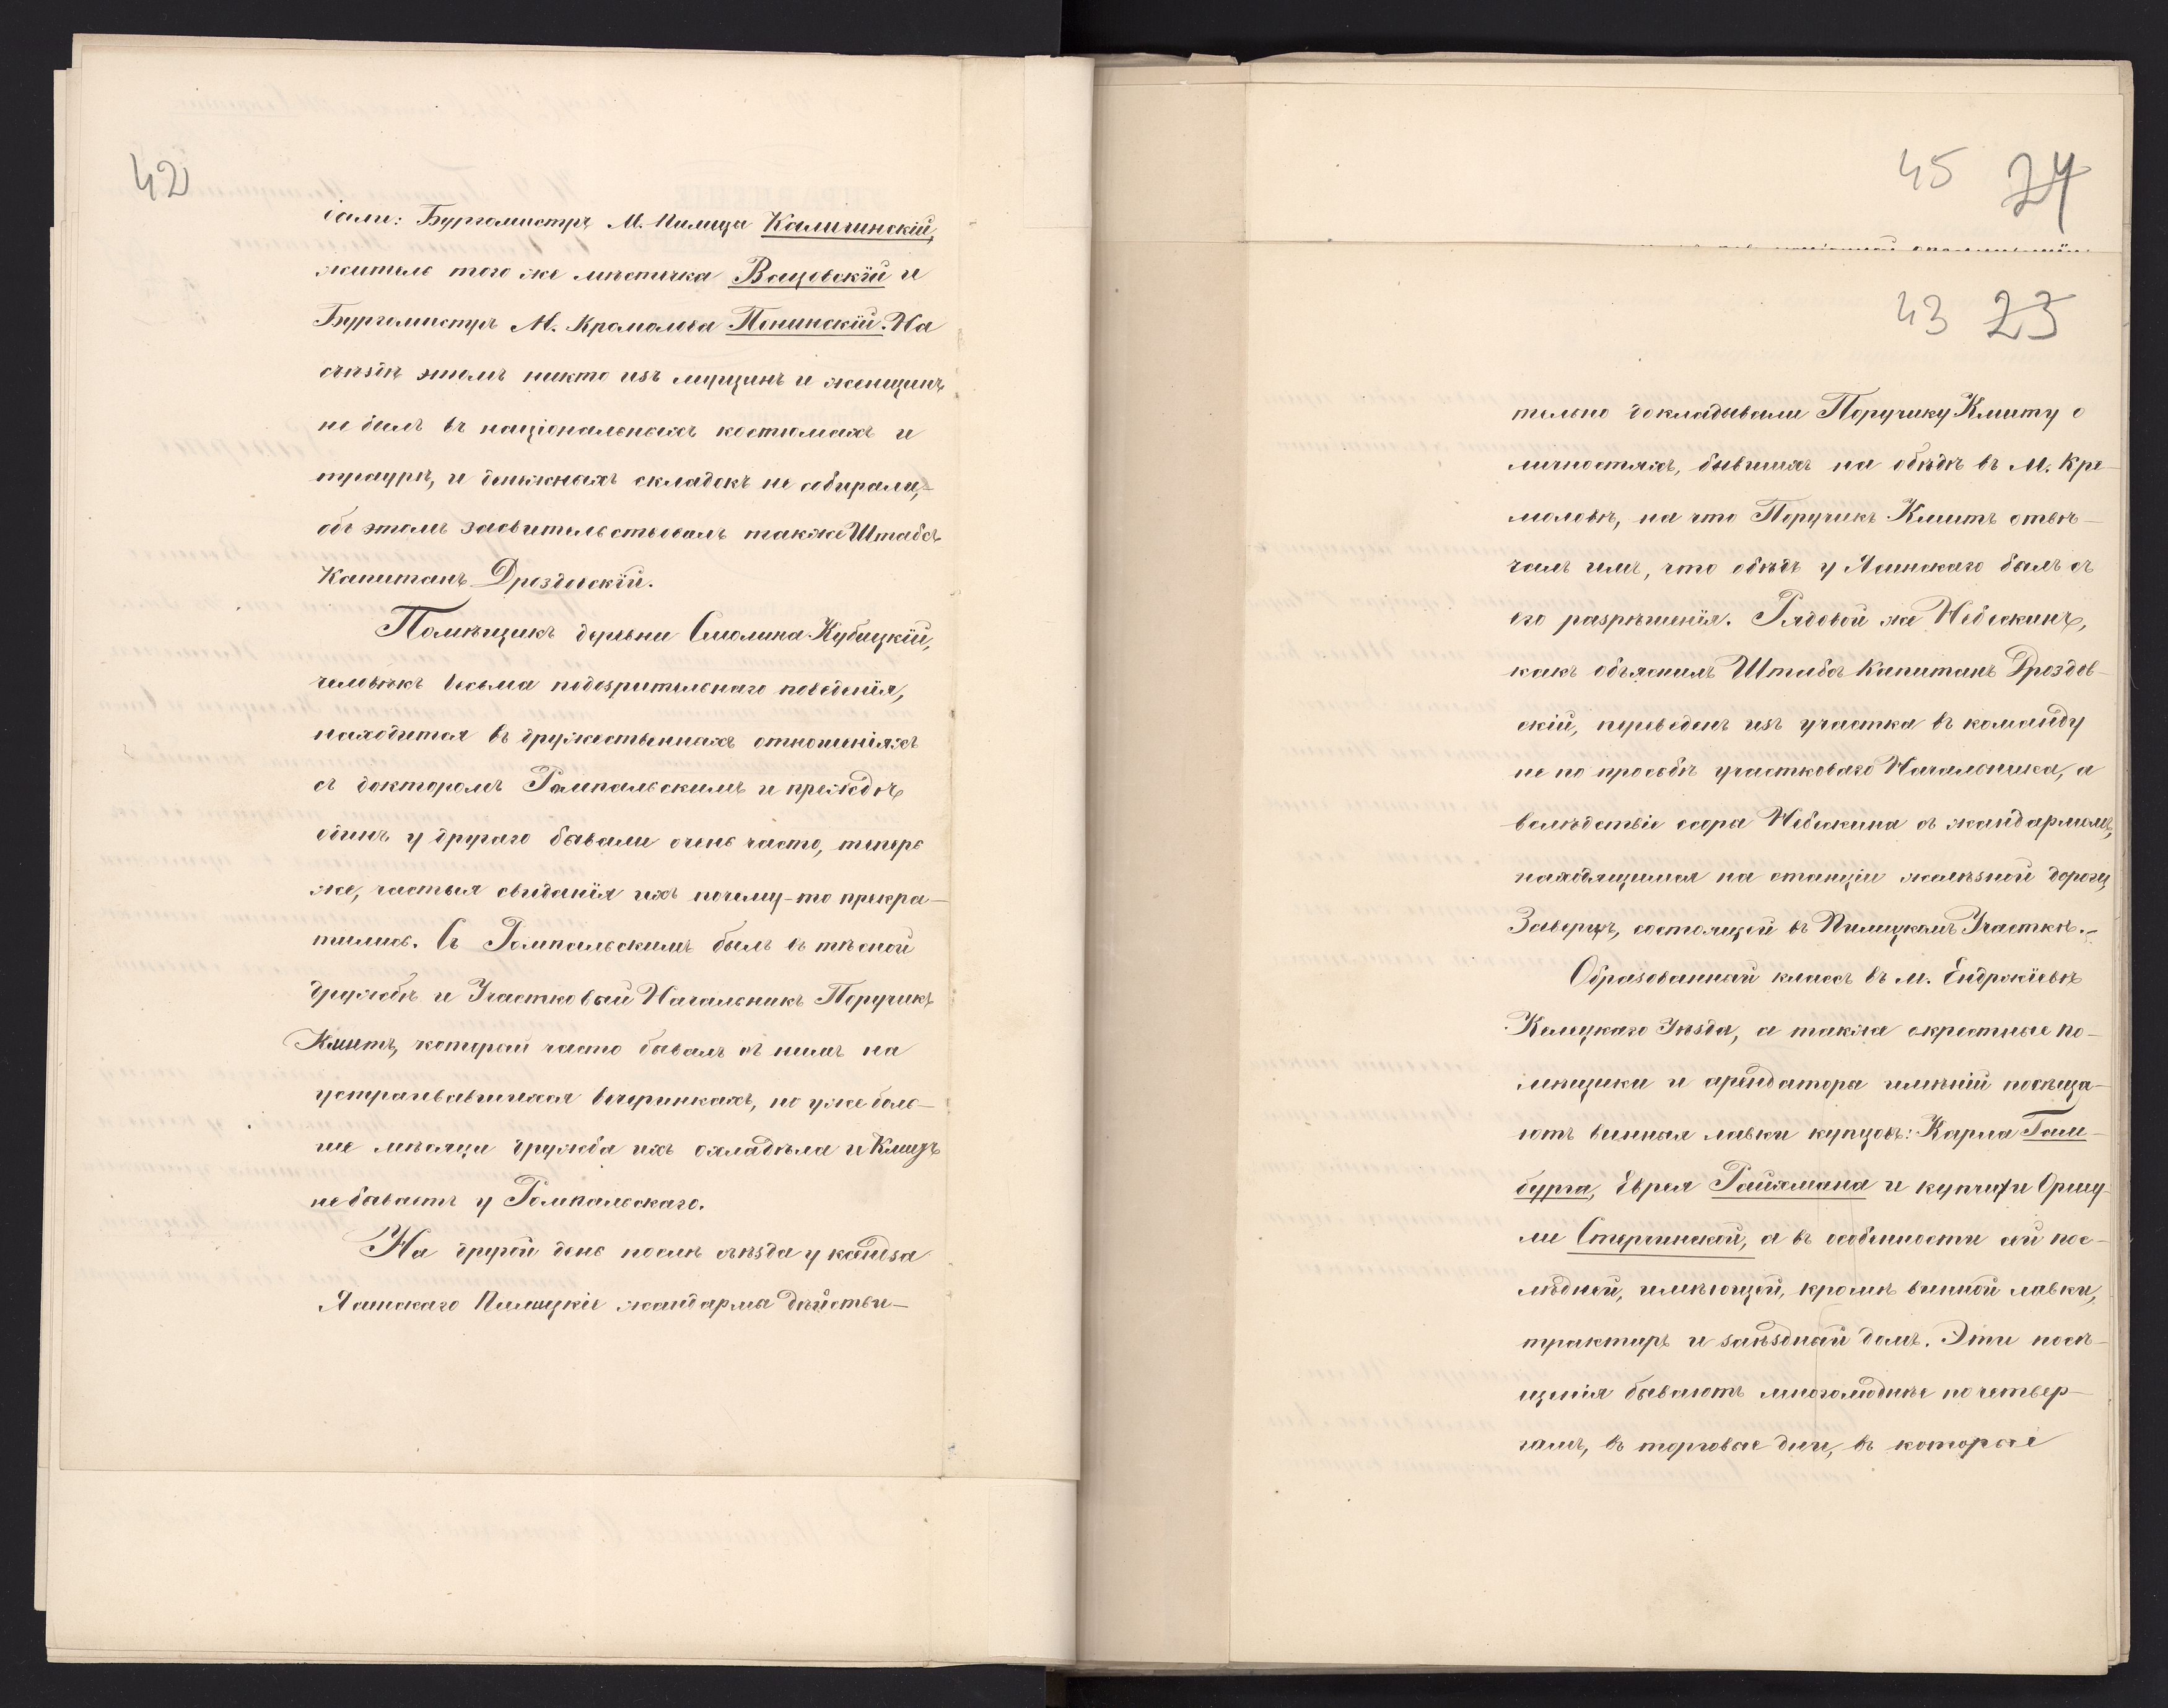 42
іали: Бургомистръ М. Пилицы Калигинскій,
житель того же мѣстечка Вацовскій и
Бургомистръ М. Кромолова Пенинскій. На
съѣздѣ этомъ никто изъ мущинъ и женщинъ
не былъ въ національныхъ костюмахъ и
траурѣ, и денежныхъ складокъ не обирали,-
объ этомъ засвительствовалъ также Штабсъ
Капитанъ Дроздовскій.
Помѣщикъ деревни Смолина Кубицкій,
человѣкъ весьма подозрительнаго поведенія,
находится въ дружественныхъ отношеніяхъ
съ докторомъ Рампальскимъ и преждѣ
одинъ у другаго бывали очень часто, теперь
же, частыя свиданія ихъ почему-то прекра-
тились. Съ Рампальскимъ былъ въ тѣсной
дружбѣ и Участковый Начальникъ Поручикъ
Клитъ, который часто бывалъ съ нимъ на
устраивавшихся вечеринкахъ, но уже боль-
ше мѣсяца дружба ихъ охладѣла и Клитъ
не бываетъ у Рампальскаго.
На другой день послѣ съѣзда у ксендза
Ясинскаго Пилицкіе жандармы дѣйстви-
45 24
43 23
тельно докладывали Поручику Клиту о
личностяхъ, бывшихъ на обѣдѣ въ М. Кро-
моловѣ, на что Поручикъ Клитъ отвѣ-
чалъ имъ, что обѣдъ у Ясинскаго былъ съ
его разрѣшенія. Рядовой же Небескинъ,
какъ объяснилъ Штабсъ Капитанъ Дроздов-
скій, переведенъ изъ участка въ команду
не по просьбѣ участковаго Начальника, а
вслѣдствіе ссоры Небескина съ жандармомъ,
находящимся на станціи желѣзной дороги
Заверце, состоящей въ Пилицкомъ Участкѣ.-
Образованный классъ въ м. Ендржіевѣ
Келецкаго Уѣзда, а также окрестные по-
мѣщики и арендаторы имѣній посѣща-
ютъ винныя лавки купцовъ: Карла Гам-
бурга, Еврея Райхмана и купчихи Оршу-
ли Стерчинской, а въ особенности сей пос-
лѣдней, имѣющей, кромѣ винной лавки,
трактиръ и заѣздный домъ. Эти посѣ-
щенія бываютъ многолюднѣе по четвер-
гамъ, въ торговые дни, въ которые